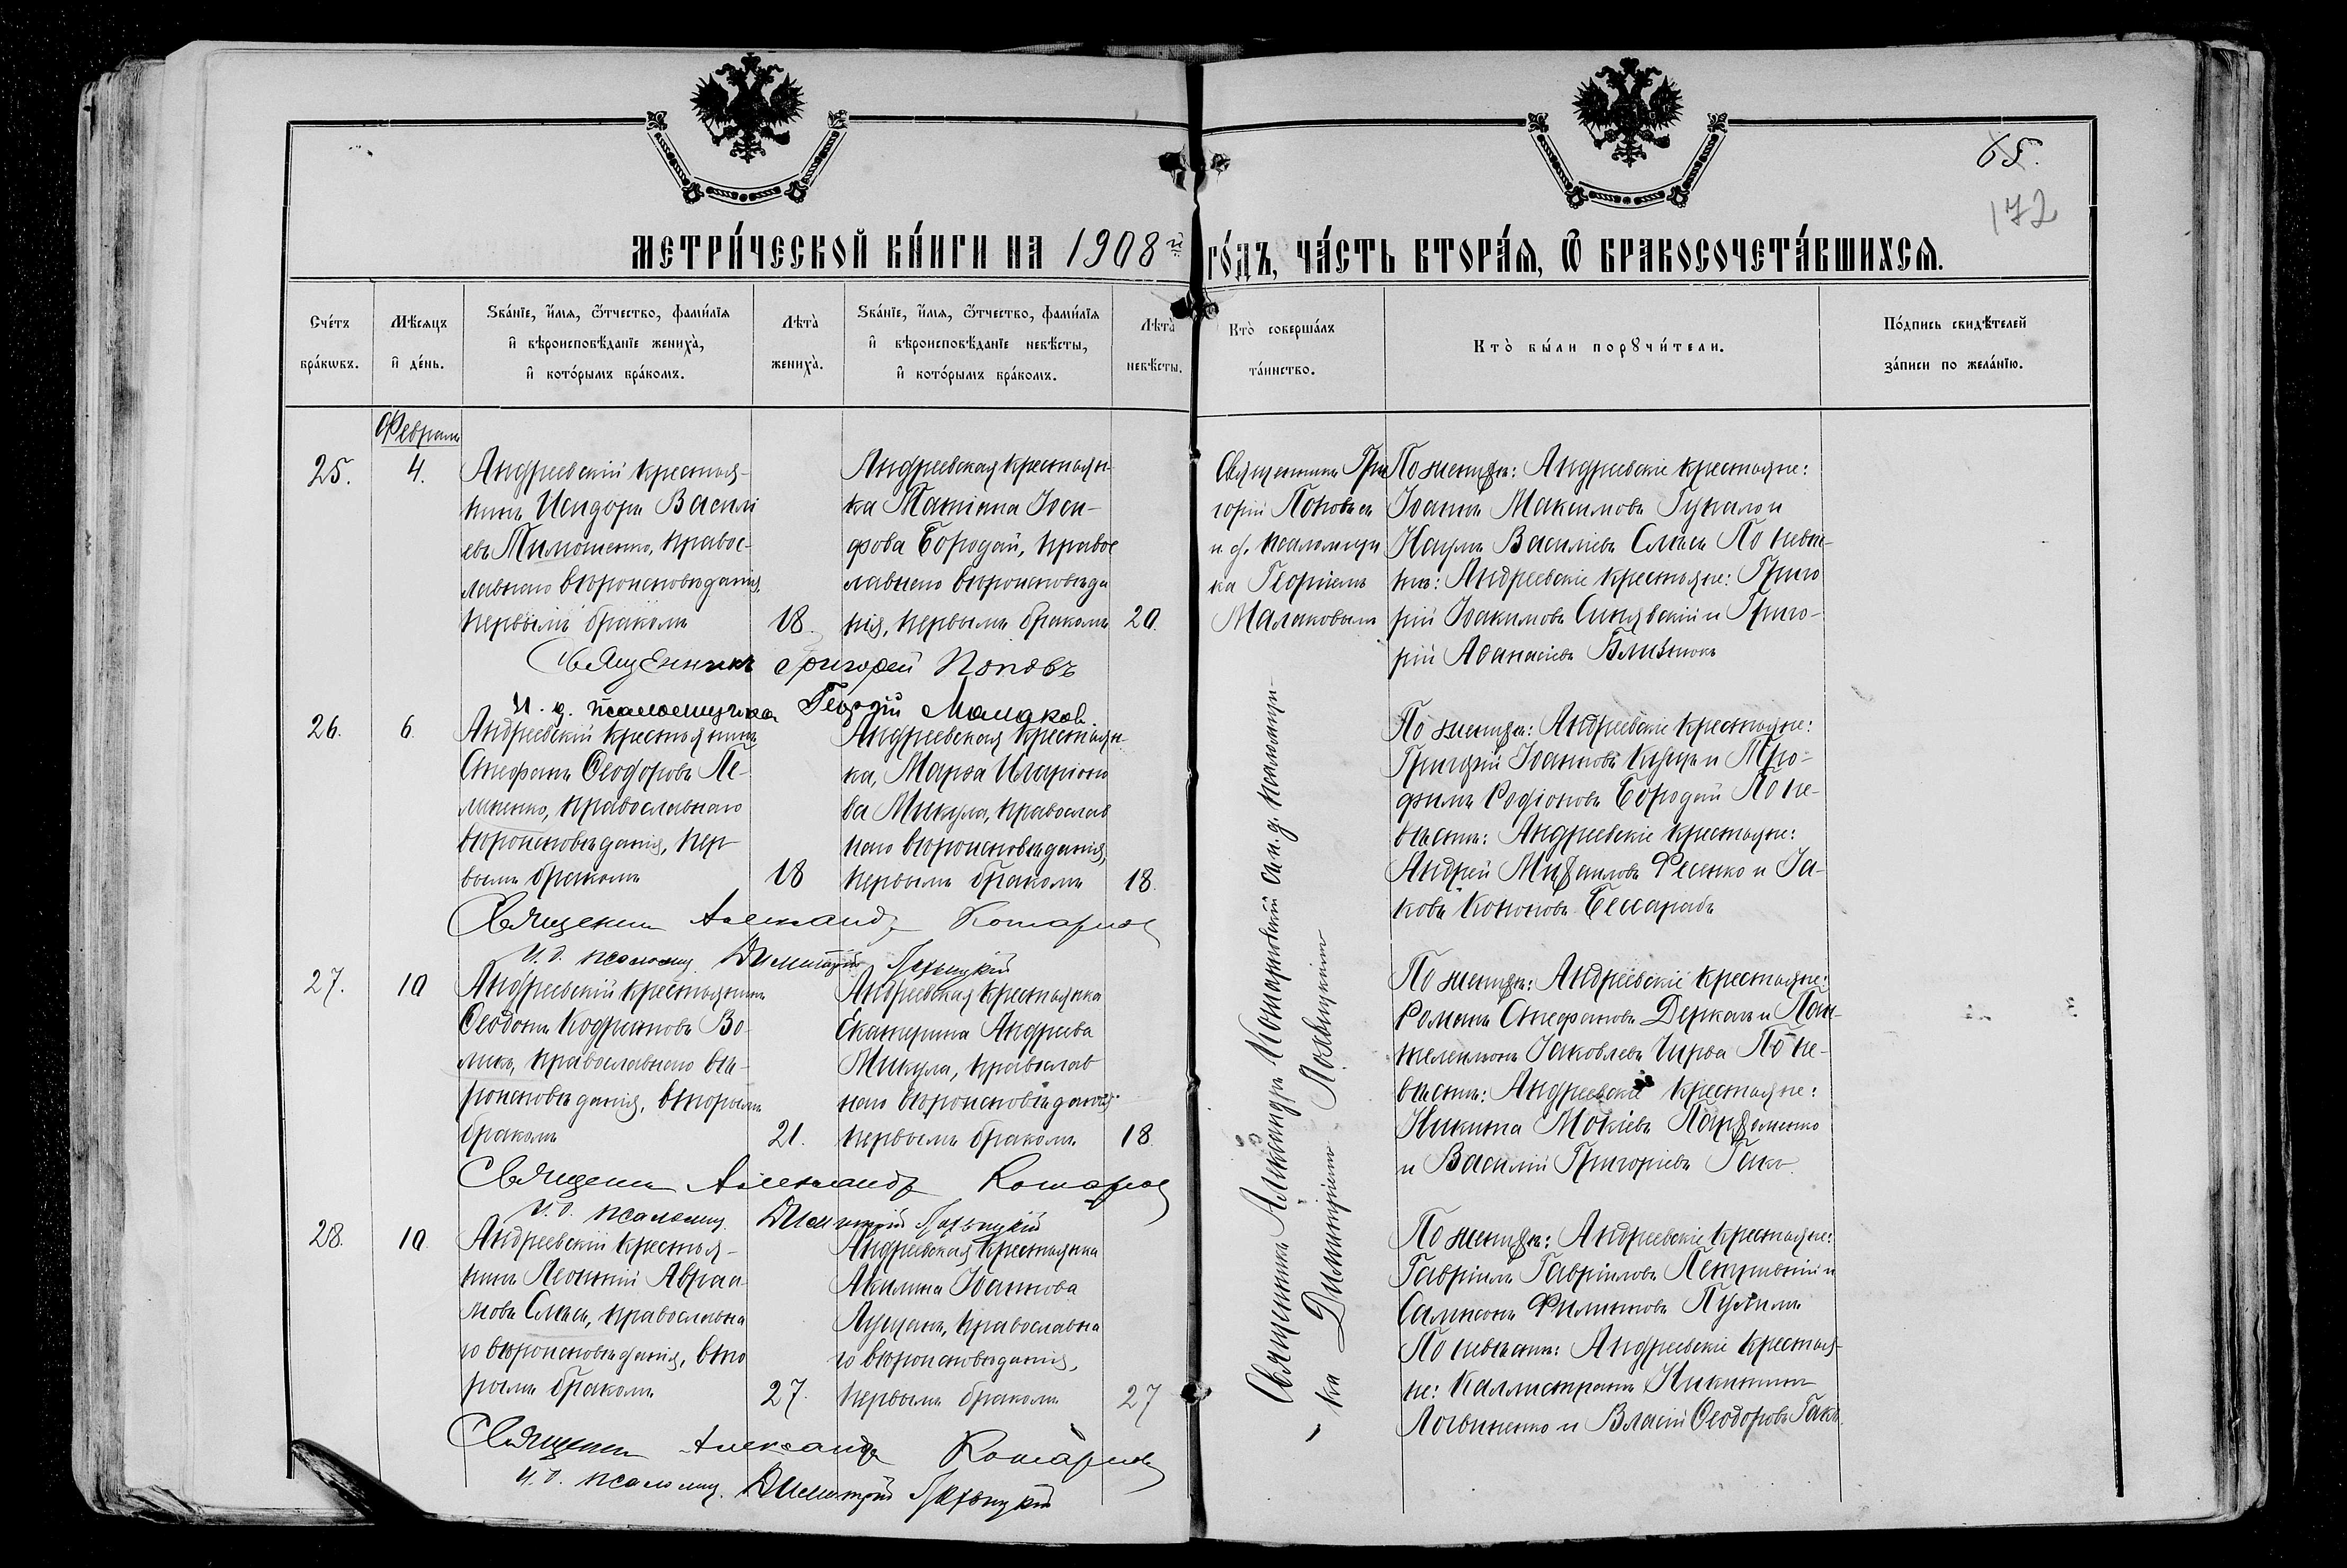 65.
172
МЕТРИ́ЧЕСКОЙ КНИ́ГИ НА 1908й ГО́ДЪ, ЧА́СТЬ ВТОРА́Я, Ѿ БРАКОСОЧЕТА́ВШИХСЯ.
Сче́тъ бра́кѡвъ.
Мѣ́сяцъ и҆ де́нь.
Ѕва́нїе, и҆́мя, ѻ҆́тчество, фами́лїя
и҆ вѣроисповѣ́данїе жениха̀,
и҆ кото́рымъ бра́комъ.
Лѣта̀ жениха̀.
Ѕва́нїе, и҆́мя, ѻ҆́тчество, фами́лїя
и҆ вѣроисповѣ́данїе невѣ́сты,
и҆ кото́рымъ бра́комъ.
Лѣта̀ невѣ́сты.
Кто̀ соверша́лъ та́инство.
Кто̀ бы́ли порꙋчи́тели.
По́дпись свидѣ́телей за́писи по жела́нїю.
Февраль
25.
4.
Андреевскій крестья-
нинъ Исидоръ Василі
евъ Тимошенко, правос-
лавнаго вѣроисповѣданія,
первымъ бракомъ
18.
Андреевская крестьян-
ка Татіана Іоси-
фова Бородай, правос
лавнаго вѣроисповѣда
нія, первымъ бракомъ
20.
Священникъ Гри
горій Поповъ съ
и. д. псаломщи
ка Георгіемъ
Малаковымъ
По женихѣ: Андреевскіе крестьяне:
Іоаннъ Максимовъ Гукало и
Наумъ Василіевъ Слись По невѣс-
тѣ: Андреевскіе крестьяне: Григо
рій Іоакимовъ Синявскій и Григо-
рій Аѳанасіевъ Близнюкъ
Священникъ Григорій Поповъ
И. д. псаломщика Георгій Малаков.
26.
6.
Андреевскій крестьянинъ
Стефанъ Ѳеодоровъ Пе-
ливенко, православнаго
вѣроисповѣданія, пер
вымъ бракомъ
18
Андреевская крестьян-
ка, Марѳа Иларіоно
ва Микула, православ
наго вѣроисповѣданія,
первымъ бракомъ
18.
По женихѣ: Андреевскіе крестьяне:
Григорій Іоанновъ Куща и Тро-
фимъ Родіоновъ Бородай По не-
вѣстѣ: Андреевскіе крестьяне:
Андрей Михаиловъ Фесенко и Іа-
ковъ Кононовъ Бессарабъ
Священникъ Александръ Комарнов
И. д. псаломщ. Димитрій
27.
10
Андреевскій крестьянинъ
Ѳеодотъ Кодратовъ Во-
ликъ, православнаго вѣ-
роисповѣданія, вторымъ
бракомъ
21.
Андреевская крестьянка
Екатерина Андреева
Микула, православ
наго вѣроисповѣданія
первымъ бракомъ
18.
По женихѣ: Андреевскіе крестьяне:
Романъ Стефановъ Деркачъ и Пан-
телеимонъ Іаковлевъ Чирва По не-
вѣстѣ: Андреевскіе крестьяне:
Никита Мокіевъ Пархоменко
и Василій Григоріевъ Гакъ.
Священникъ Александръ Комарнов
И. д. псаломщ. Димитрій
28.
10.
Андреевскій крестья-
нинъ Леонтій Авраа
мовъ Слись, православна
го вѣроисповѣданія, вто
рымъ бракомъ
27.
Андреевская крестьянка
Акилина Іоаннова
Луцань, православна
го вѣроисповѣданія,
первымъ бракомъ
27
По женихѣ: Андреевскіе крестьяне:
Гавріилъ Гавріиловъ Петривній и
Сампсонъ Филипповъ
По невѣстѣ: Андреевскіе крестья-
не: Каллистратъ Никитинъ
Логвиненко и Власій Ѳеодоровъ Гакъ.
Священникъ Александръ Комарнов
И. д. псаломщ. Димитрій
Священникъ Александръ Комарновскій съ и. д. псаломщи-
ка Димитріемъ